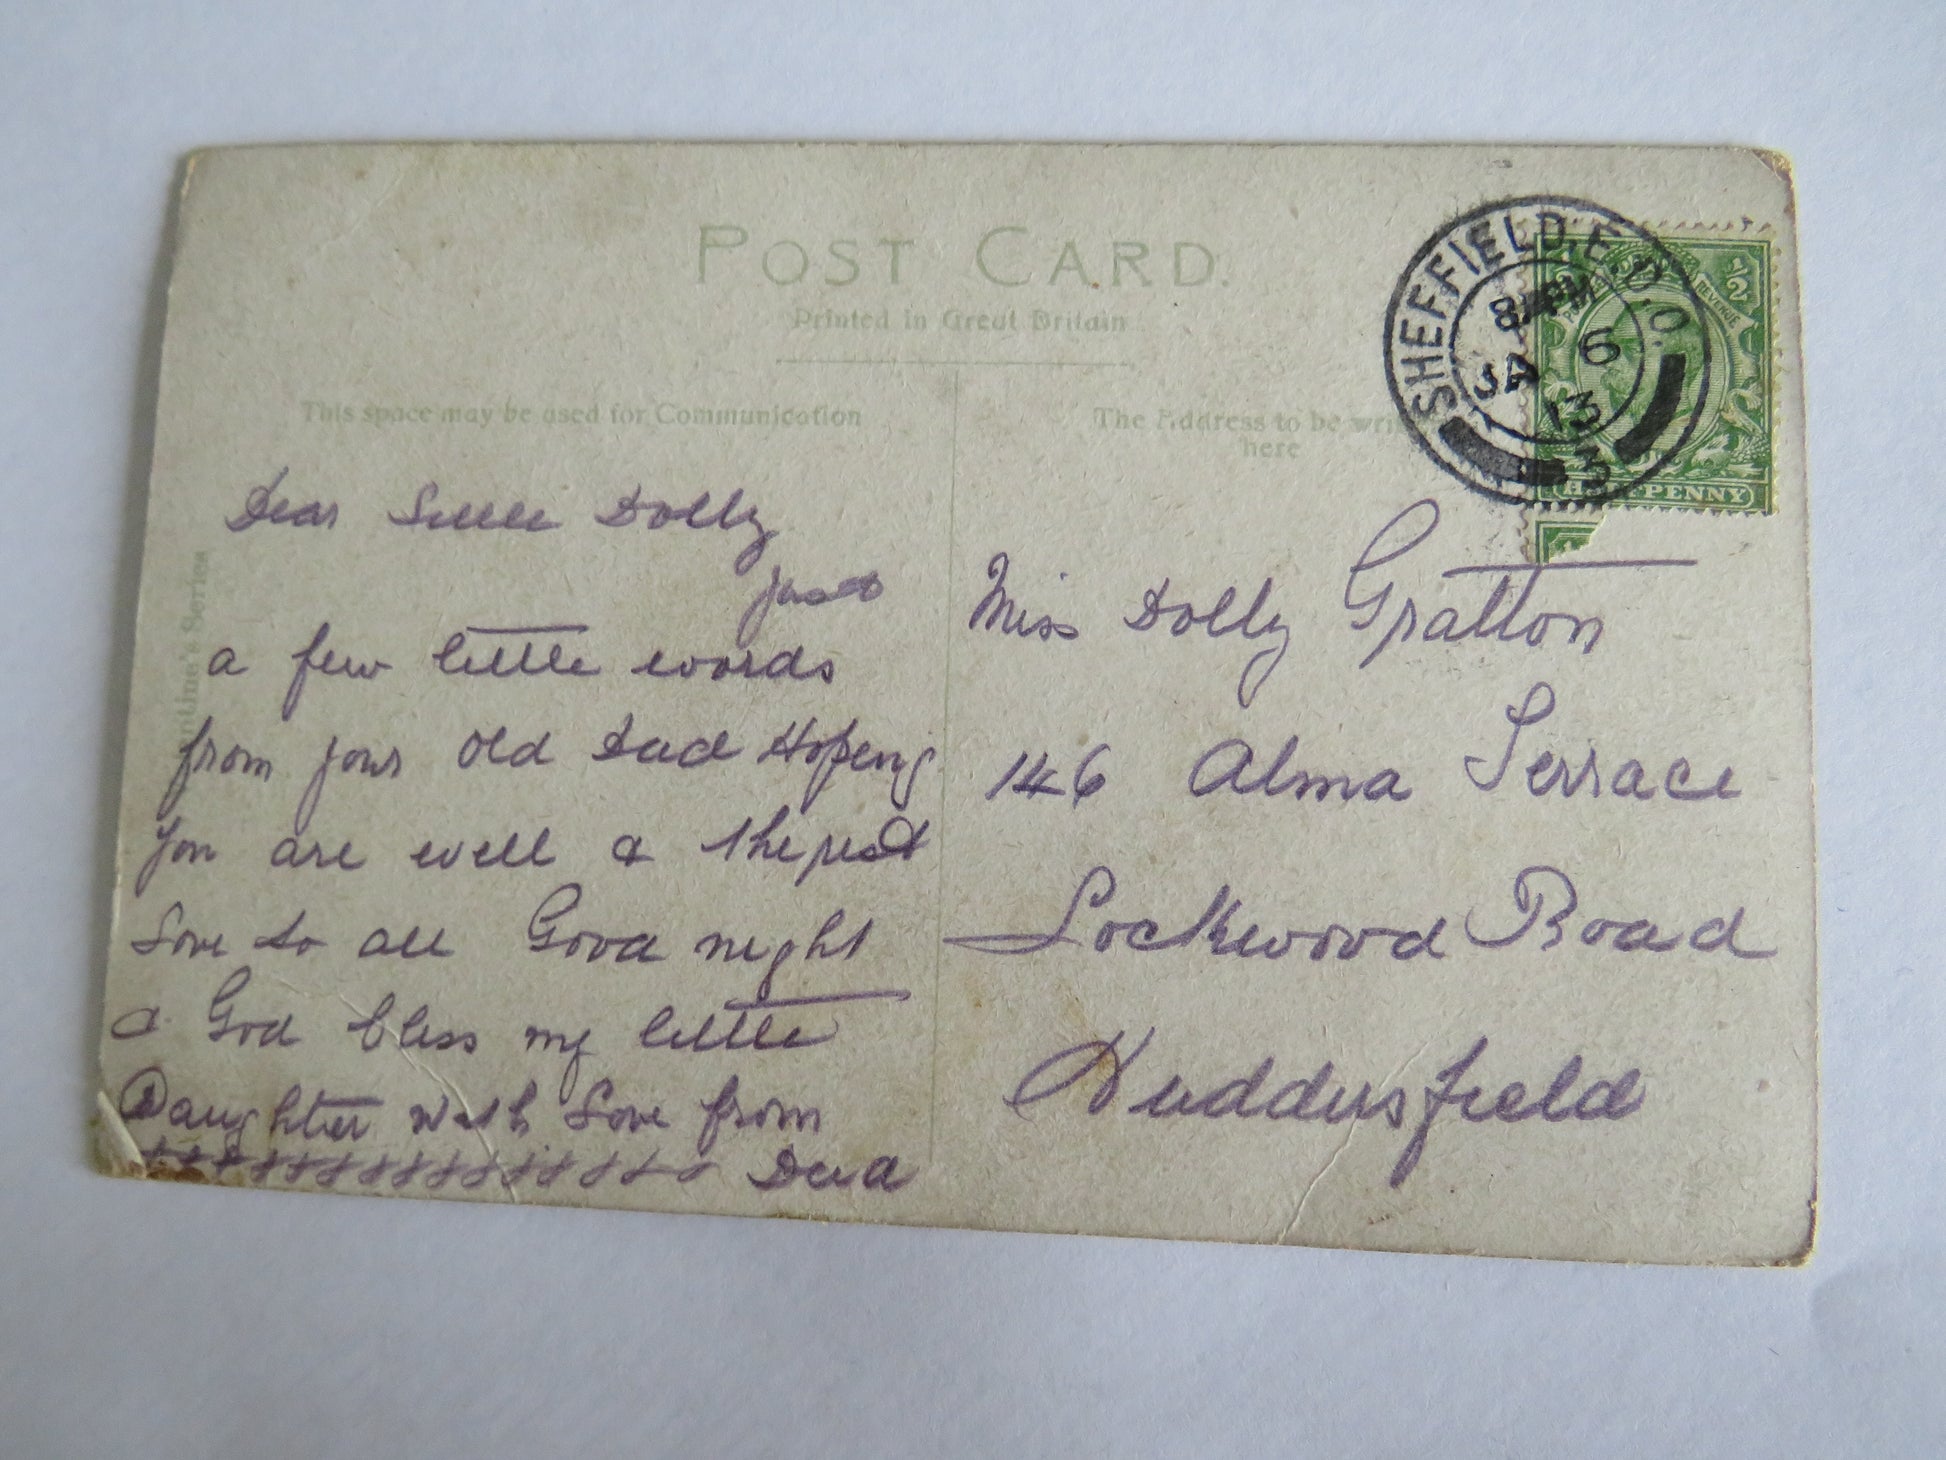 POST CARD.
Printed in Great Britain
This space may be used for Communication
The Address to be
here
SHEFFIELD. E.D.O.
PM
6
JA
13
3
POSTAGE
REVENUE
1/2
HALFPENNY
Series
Dear little Dolly
just
a few little words
from your old Dad Hoping
you are well & the rest
love to all Good night
& God bless my little
Daughter with love from
Dad
Miss Dolly Gratton
146 Alma Terrace
Lockwood Road
Huddersfield